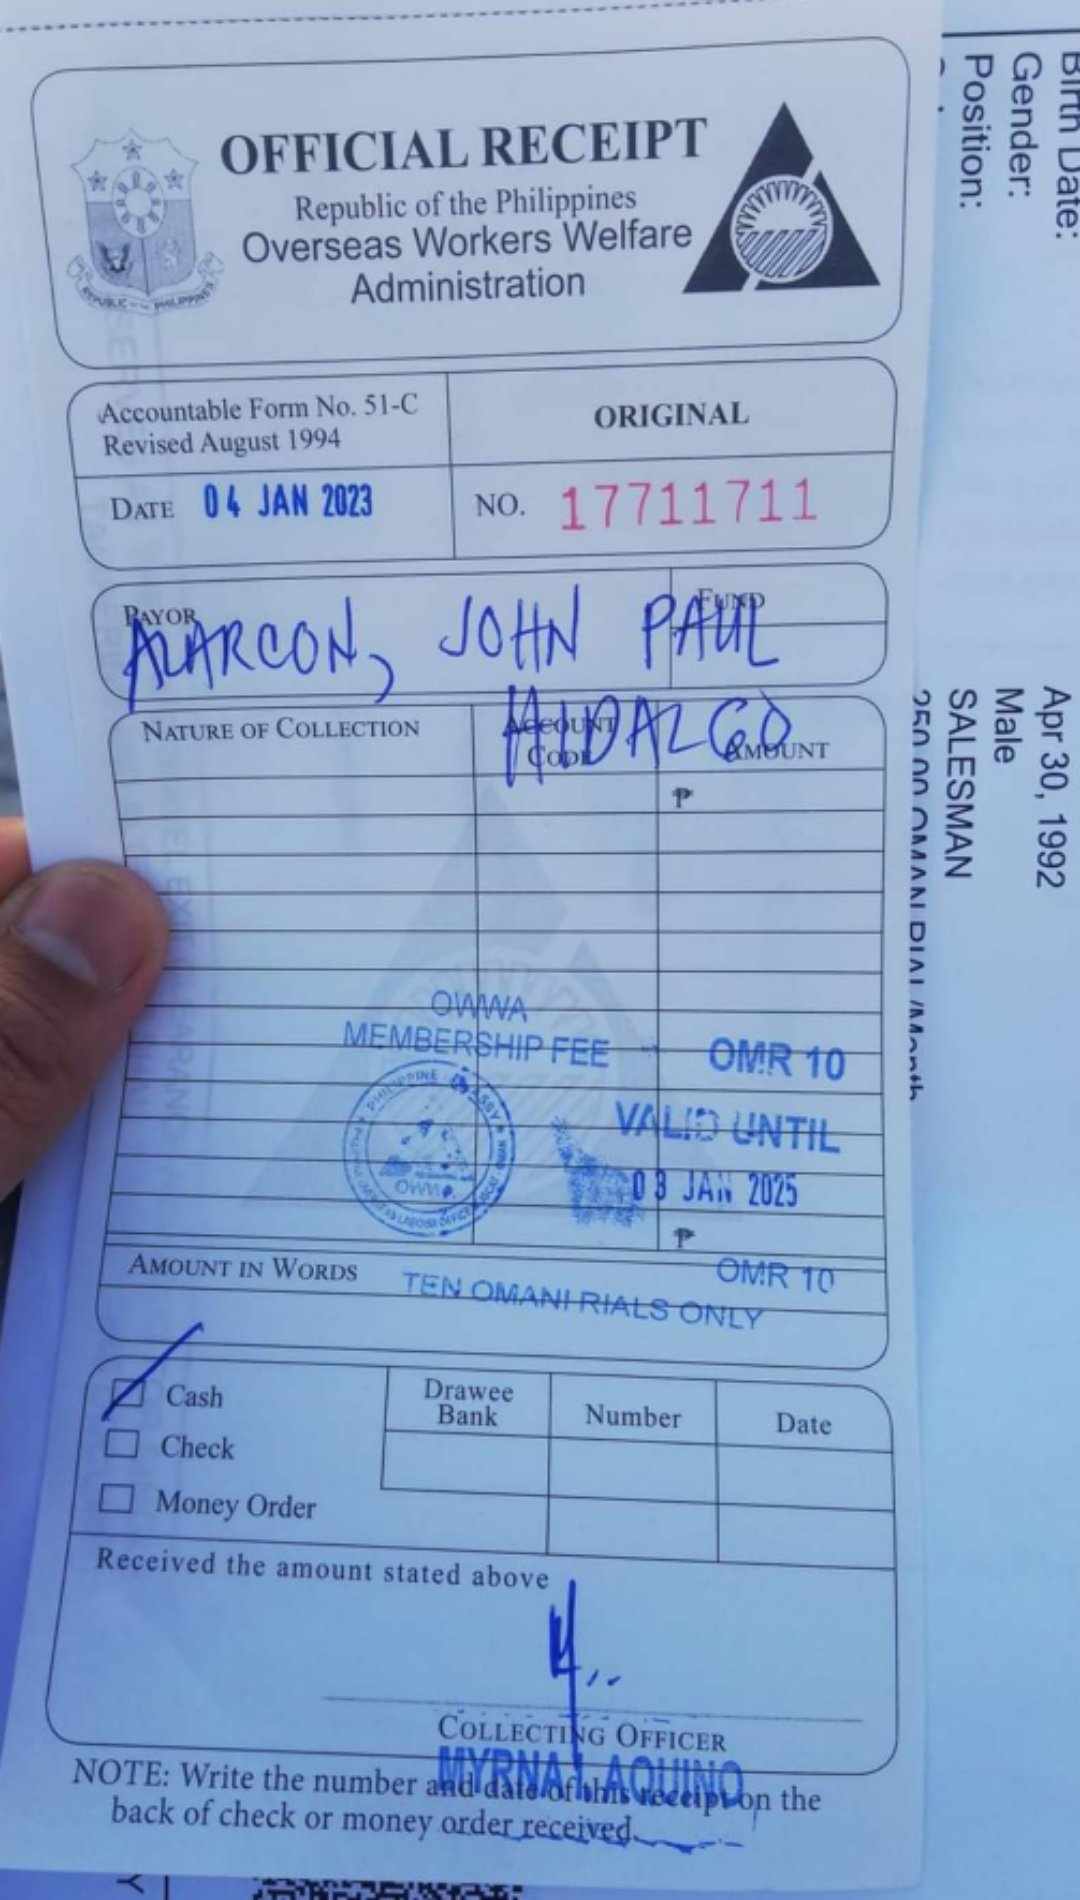 OFFICIAL RECEIPT
Republic of the Philippines
Overseas Workers Welfare
Administration
REPUBLIC OF THE PHILIPPINES
Accountable Form No. 51-C
Revised August 1994
ORIGINAL
DATE 04 JAN 2023
NO. 17711711
PAYOR
FUND
ALARCON, JOHN PAUL
HIDALGO
NATURE OF COLLECTION
ACCOUNT
CODE
AMOUNT
₱
OWWA
MEMBERSHIP FEE - OMR 10
VALID UNTIL
03 JAN 2025
PHILIPPINE EMBASSY
OWWA
₱
OMR 10
AMOUNT IN WORDS
TEN OMANI RIALS ONLY
Cash
Check
Money Order
Drawee
Bank
Number
Date
Received the amount stated above
COLLECTING OFFICER
MYRNA AQUINO
NOTE: Write the number and date of this receipt on the
back of check or money order received.
Birth Date: Apr 30, 1992
Gender: Male
Position: SALESMAN
250.00 OMAN RIAL/Month